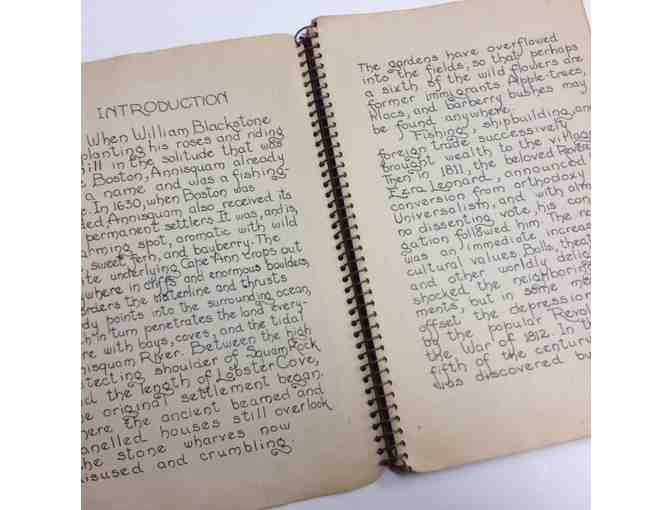 INTRODUCTION
When William Blackstone
planting his roses and riding
in the solitude that was
Boston, Annisquam already
a name and was a fishing-
In 1630, when Boston was
Annisquam also received its
permanent settlers. It was, and is,
spot, aromatic with wild
sweet fern, and bayberry. The
underlying Cape Ann crops out
where in cliffs and enormous boulders,
the waterline and thrusts
points into the surrounding ocean,
in turn penetrates the land every-
with bays, coves, and the tidal
River. Between the high
shoulder of Squam Rock
the length of Lobster Cove,
original settlement began.
the ancient beamed and
houses still overlook
stone wharves now
and crumbling.
The gardens have overflowed
into the fields, so that perhaps
a sixth of the wild flowers are
former immigrants. Apple-trees,
lilacs, and barberry bushes may
be found anywhere.
Fishing, shipbuilding, and
foreign trade successively
brought wealth to the village.
Then in 1811, the beloved
Ezra Leonard, announced
conversion from orthodoxy
Universalism, and with
no dissenting vote, his con-
gation followed him. The
was an immediate increas
cultural values. Balls,
and other worldly
shocked the neighboring
ments, but in some
offset the depression
by the popular Revol
the War of 1812. In
fifth of the century
was discovered